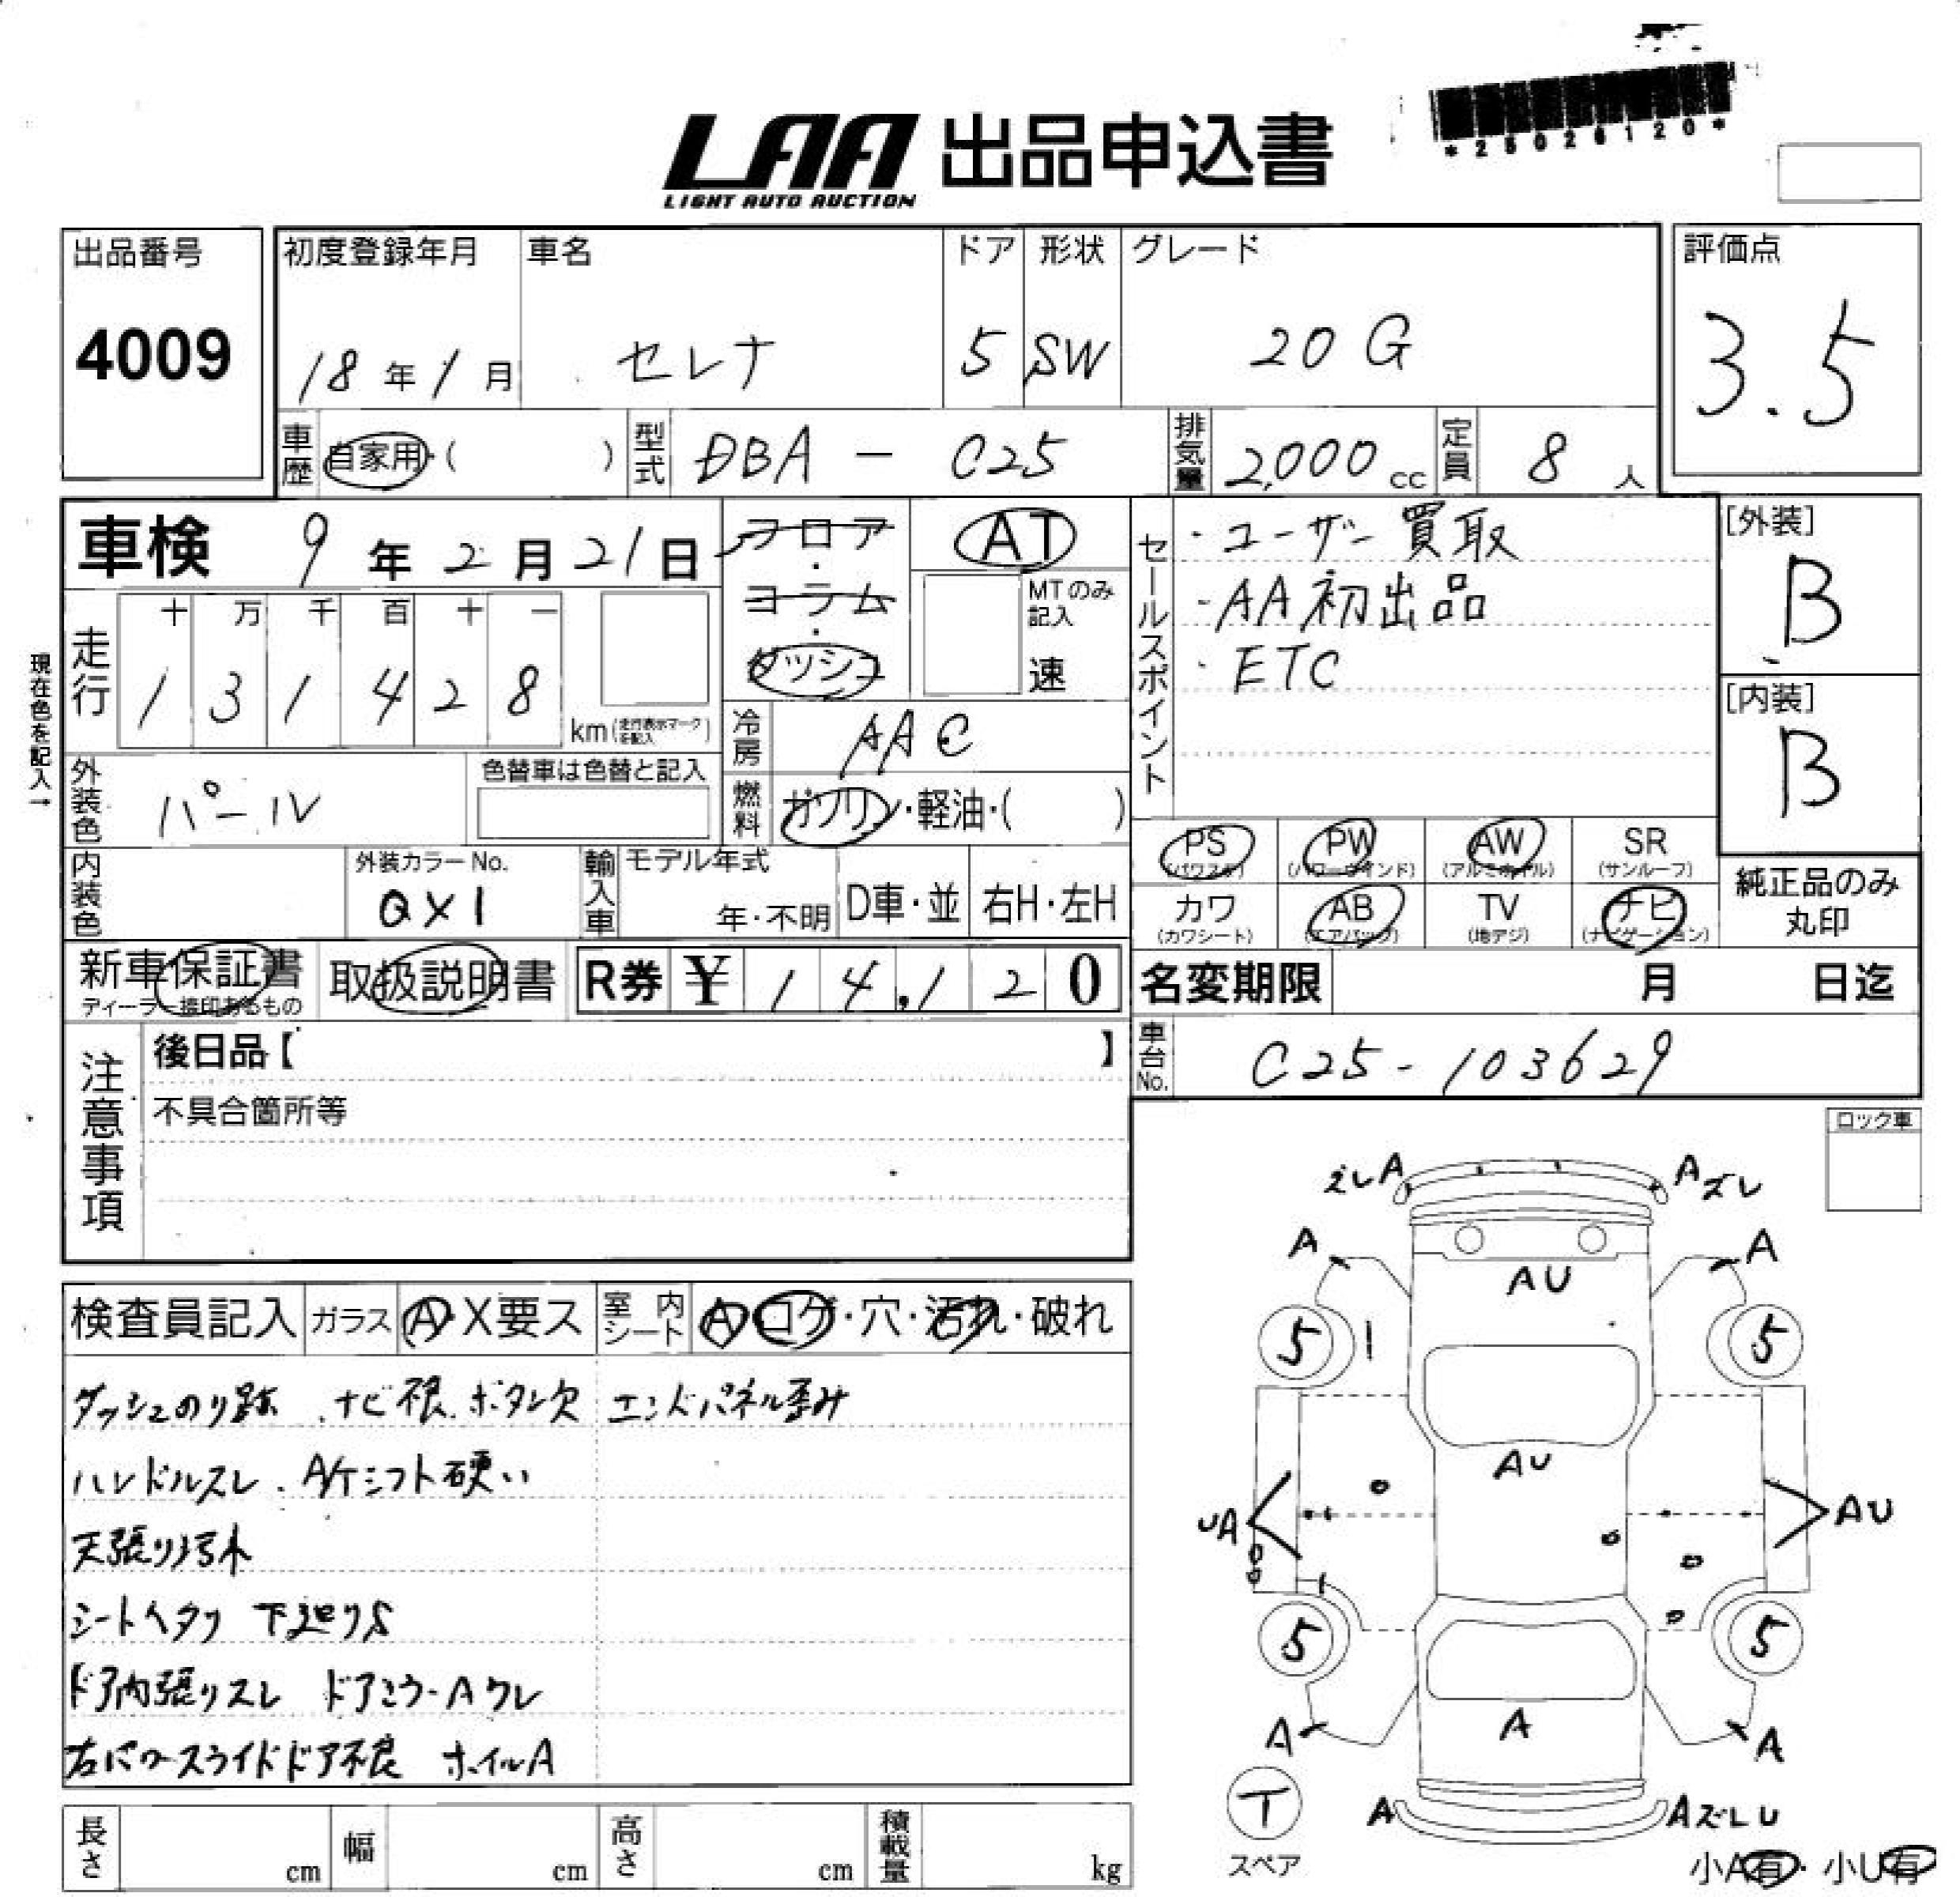 *25026120*
LAA 出品申込書
LIGHT AUTO AUCTION
出品番号
4009
初度登録年月
18年1月
車名
セレナ
ドア
5
形状
SW
グレード
20G
評価点
3.5
車歴
自家用・( )
型式
DBA - C25
排気量
2,000cc
定員
8人
車検 9年2月21日
フロア・コラム・ダッシュ
AT
MTのみ記入
速
セールスポイント
・ユーザー買取
・AA初出品
・ETC
[外装]
B
[内装]
B
現在色を記入→
走行
十万千百十一
131428
km(走行表示マークを記入)
冷房
AAC
外装色
パール
色替車は色替と記入
燃料
ガソリン・軽油・( )
PS
(パワステ)
PW
(パワーウインド)
AW
(アルミホイル)
SR
(サンルーフ)
カワ
(カワシート)
AB
(エアバッグ)
TV
(地デジ)
ナビ
(ナビゲーション)
純正品のみ
丸印
内装色
外装カラーNo.
QX1
輸入車
モデル年式
年・不明
D車・並
右H・左H
新車保証書
ディーラー捺印あるもの
取扱説明書
R券 ¥ 14,120
名変期限 月 日迄
車台No.
C25-103629
注意事項
後日品【 】
不具合箇所等
ロック車
検査員記入
ガラス
A・X要ス
室内シート
A・コゲ・穴・汚れ・破れ
ダッシュのり跡 、ナビ不良、ボタン欠 エンドパネル歪み
ハンドルスレ、A/Tシフト硬い
天張り汚れ
シートヘタリ 下廻りS
ドア内張りスレ ドアミラーAワレ
右パワースライドドア不良 ホイルA
ズレA
Aズレ
A
A
AU
5
5
AU
UA
AU
5
5
A
A
A
T
スペア
A
AズレU
小A有・小U有
長さ
cm
幅
cm
高さ
cm
積載量
kg